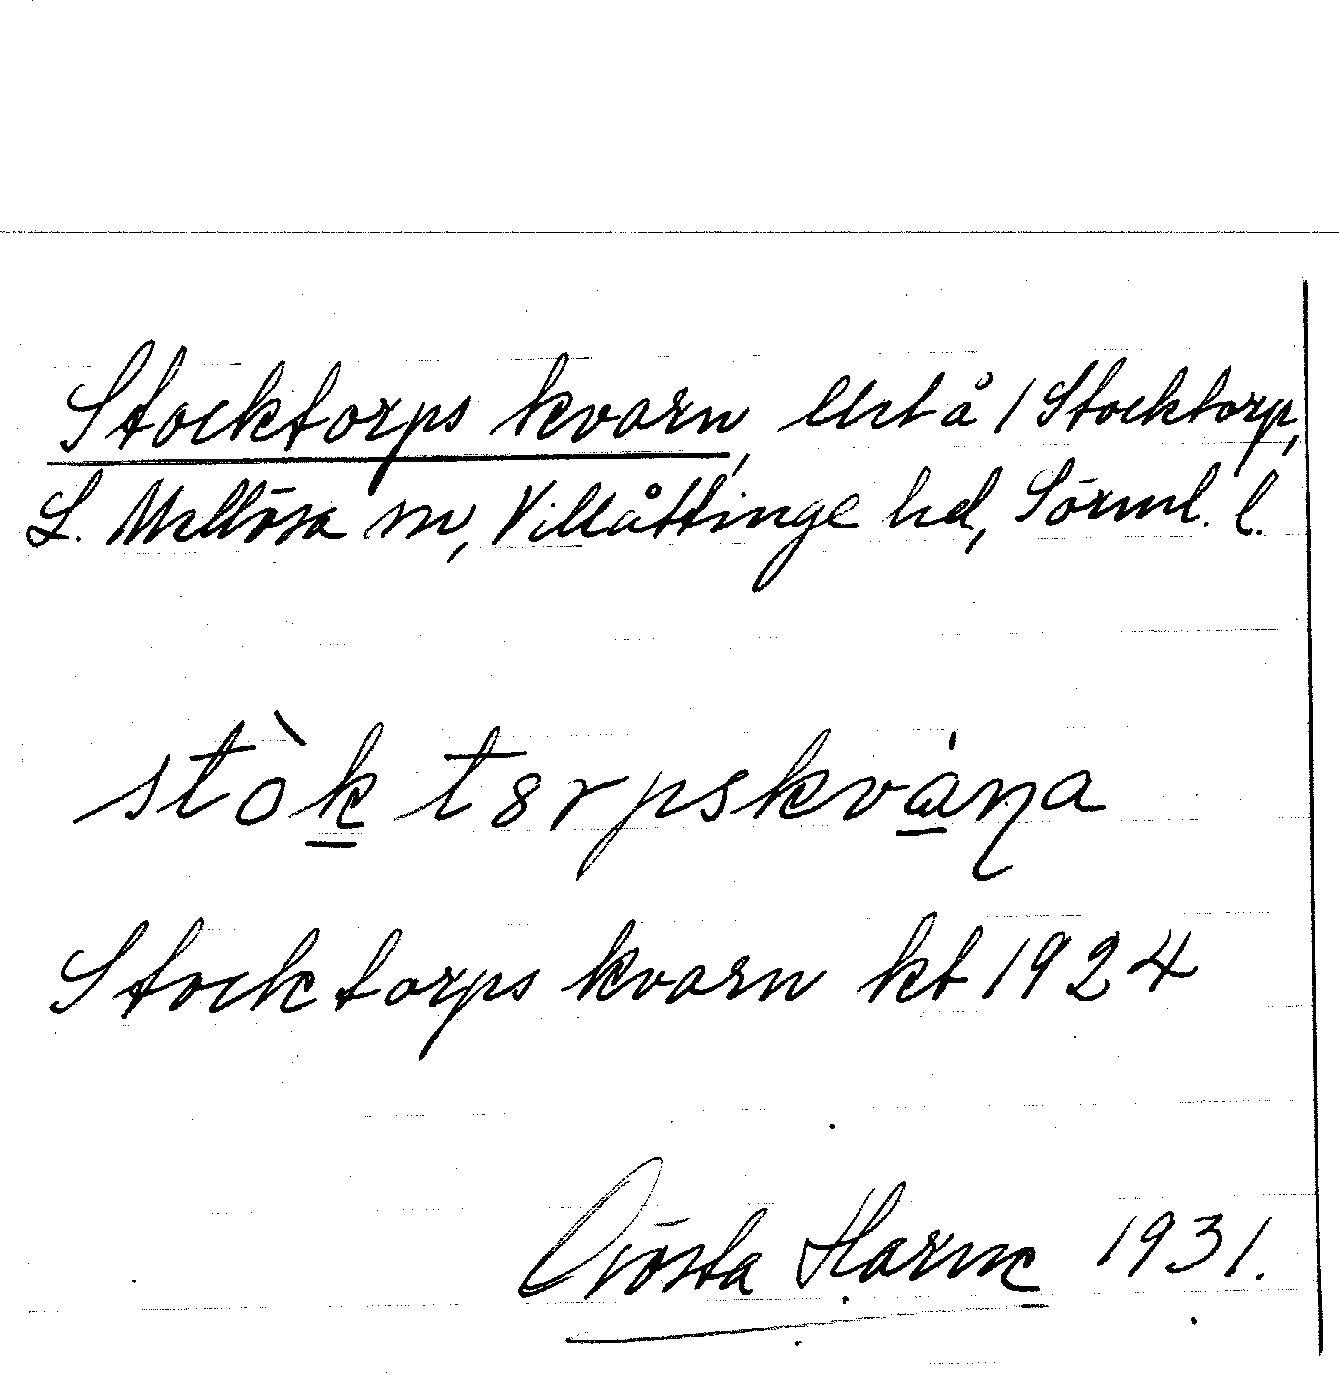 Stocktorps kvarn, lht å 1 Stocktorp,
L. Mellösa sn, Villåttinge hd, Sörml. l.
stòk tɞrpskvána
Stocktorps kvarn kt 1924
Gösta Harne 1931.